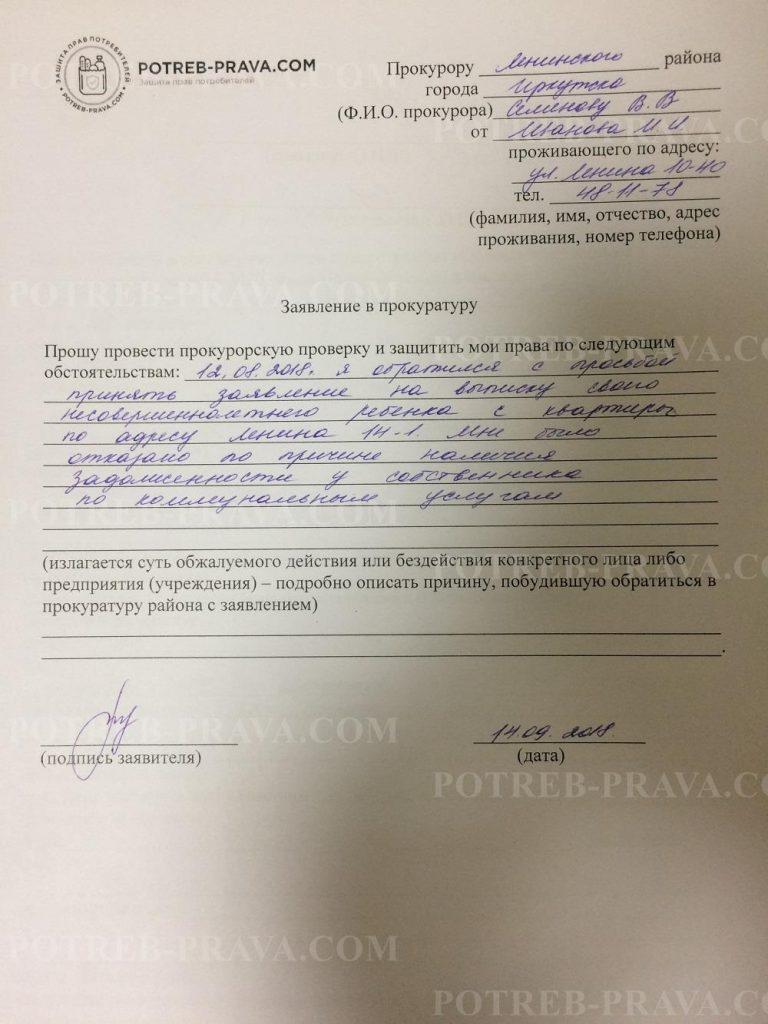 ЗАЩИТА ПРАВ ПОТРЕБИТЕЛЕЙ
POTREB-PRAVA.COM
POTREB-PRAVA.COM
Защита прав потребителей
Прокурору Ленинского района
города Иркутска
(Ф.И.О. прокурора) Семинову В. В
от Иванова И. И.
проживающего по адресу:
ул. Ленина 10-40
тел. 48-11-78
(фамилия, имя, отчество, адрес
проживания, номер телефона)
Заявление в прокуратуру
Прошу провести прокурорскую проверку и защитить мои права по следующим
обстоятельствам: 12.08.2018г. я обратился с просьбой
принять заявление на выписку своего
несовершеннолетнего ребенка с квартиры
по адресу Ленина 14-1. Мне было
отказано по причине наличия
задолженности у собственника
по коммунальным услугам
(излагается суть обжалуемого действия или бездействия конкретного лица либо
предприятия (учреждения) – подробно описать причину, побудившую обратиться в
прокуратуру района с заявлением)
14.09. 2018.
(подпись заявителя) (дата)
POTREB-PRAVA.COM
POTREB-PRAVA.COM
POTREB-PRAVA.COM
POTREB-PRAVA.COM